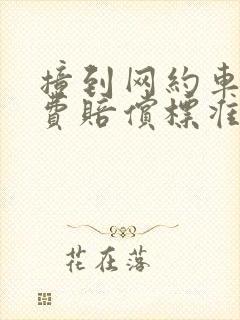 撞到网约车
费赔偿标准
花在落